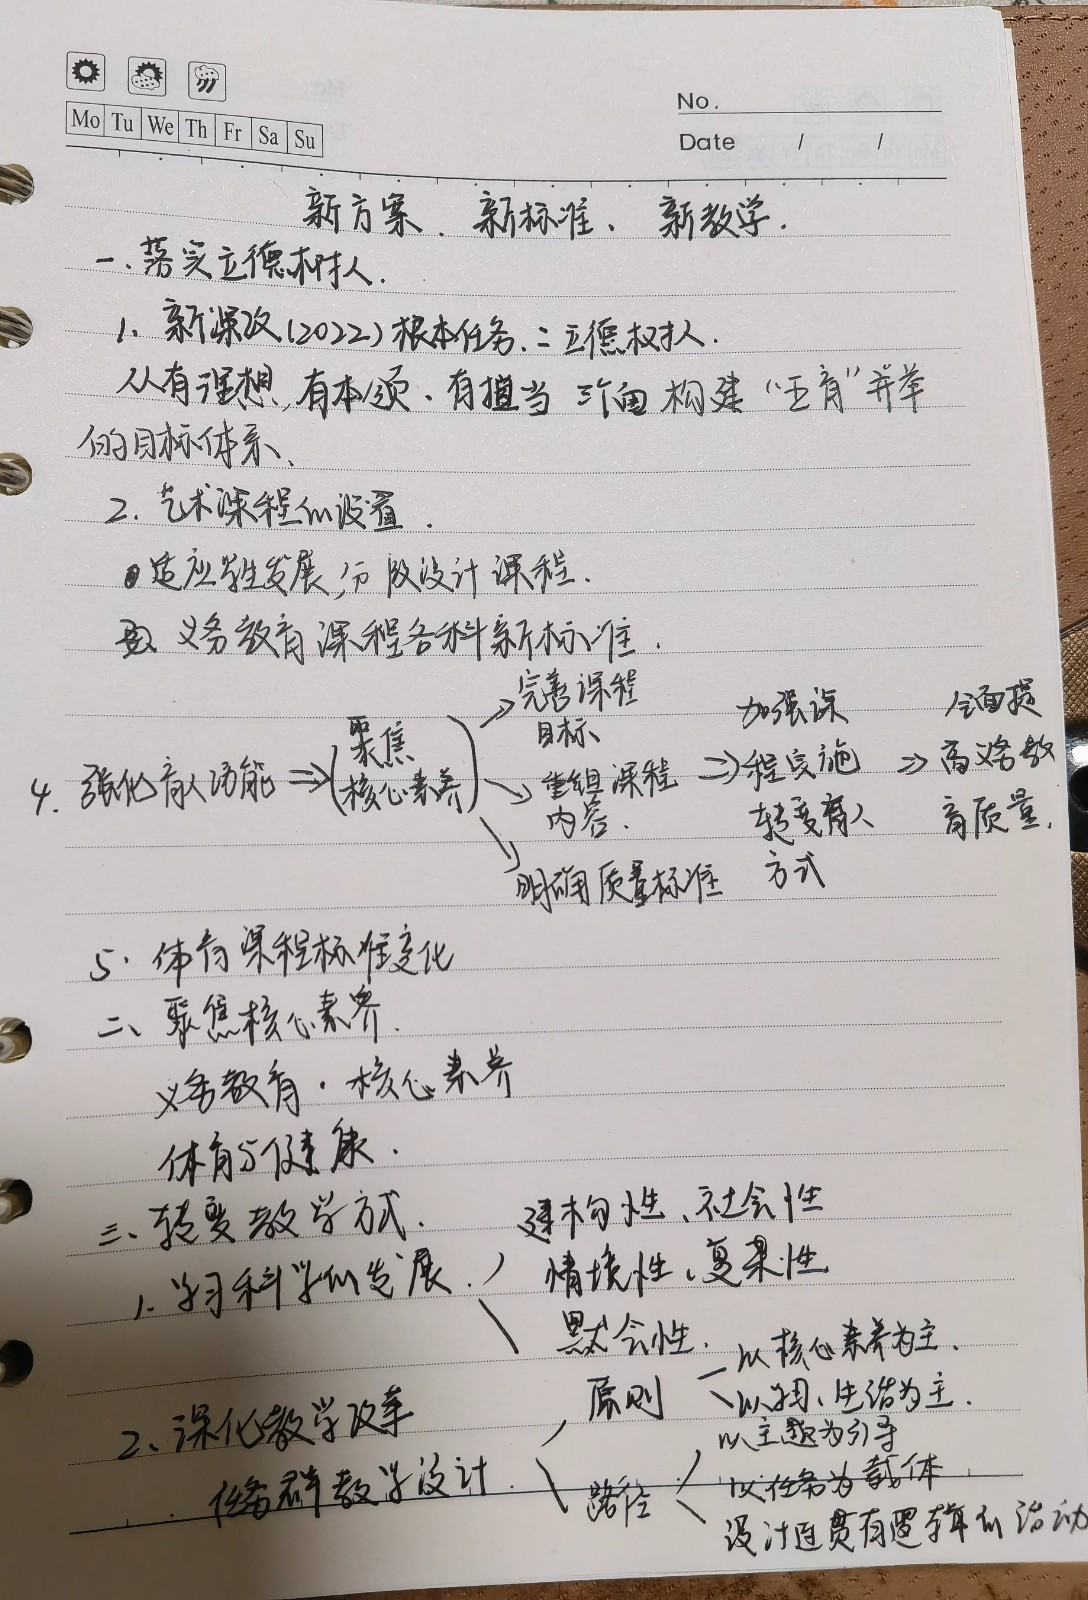 Mo Tu We Th Fr Sa Su
No.
Date / /
新方案、新标准、新教学.
一、落实立德树人.
1、新课改(2022)根本任务:立德树人.
从有理想,有本领、有担当 三个面 构建“五育”并举
的目标体系、
2、艺术课程的设置.
适应学生发展,分段设计课程.
3、义务教育课程各科新标准.
4、强化育人功能 ⇒ (聚焦
核心素养)
→ 完善课程
目标
→ 重组课程
内容.
→ 明确质量标准
⇒ 加强课
程实施
转变育人
方式
⇒ 全面提
高义务教
育质量.
5、体育课程标准变化
二、聚焦核心素养.
义务教育·核心素养
体育与健康.
三、转变教学方式.
1、学习科学的发展.
建构性、社会性
情境性、复杂性
默会性.
2、深化教学改革
任务群教学设计
原则
以核心素养为主.
以学习、生活为主.
路径
以主题为引导
以任务为载体
设计连贯有逻辑的活动